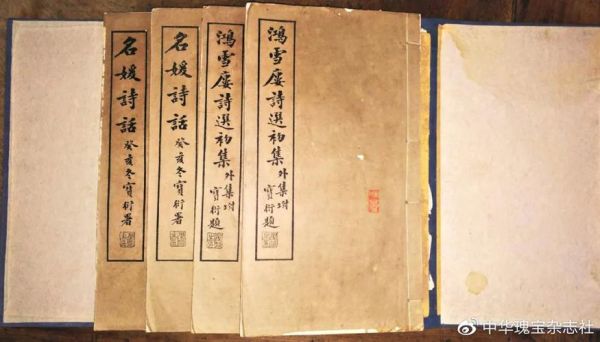 鴻雪廔詩選初集
外集坿
寶衍題
鴻雪廔詩選初集
外集坿
寶衍題
名媛詩話
癸亥冬寶衍署
名媛詩話
癸亥冬寶衍署
@中华瑰宝杂志社